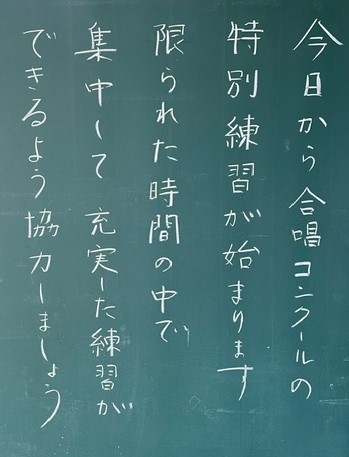 今日から合唱コンクールの
特別練習が始まります
限られた時間の中で
集中して充実した練習が
できるよう協力しましょう